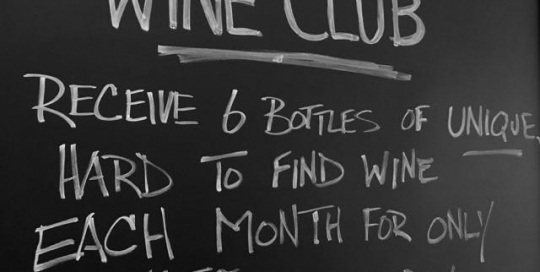 WINE CLUB
RECEIVE 6 BOTTLES OF UNIQUE,
HARD TO FIND WINE
EACH MONTH FOR ONLY